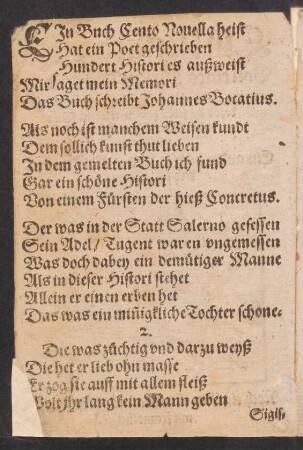 EIn Buch Cento Nouella heist
Hat ein Poet geschrieben
Hundert Histori es außweist
Mir saget mein Memori
Das Buch schreibt Johannes Bocatius.
Als noch ist manchem Weisen kundt
Dem sollich kunst thut lieben
In dem gemelten Buch ich fund
Gar ein schöne Histori
Von einem Fürsten der hieß Concretus.
Der was in der Statt Salerno gesessen
Sein Adel / Tugent waren vngemessen
Was doch dabey ein demütiger Manne
Als in dieser Histori stehet
Allein er einen erben het
Das was ein miñigkliche Tochter schone.
2.
Die was züchtig vnd darzu weyß
Die het er lieb ohn masse
Er zog sie auff mit allem fleiß
Wolt jhr lang kein Mann geben
Sigis-